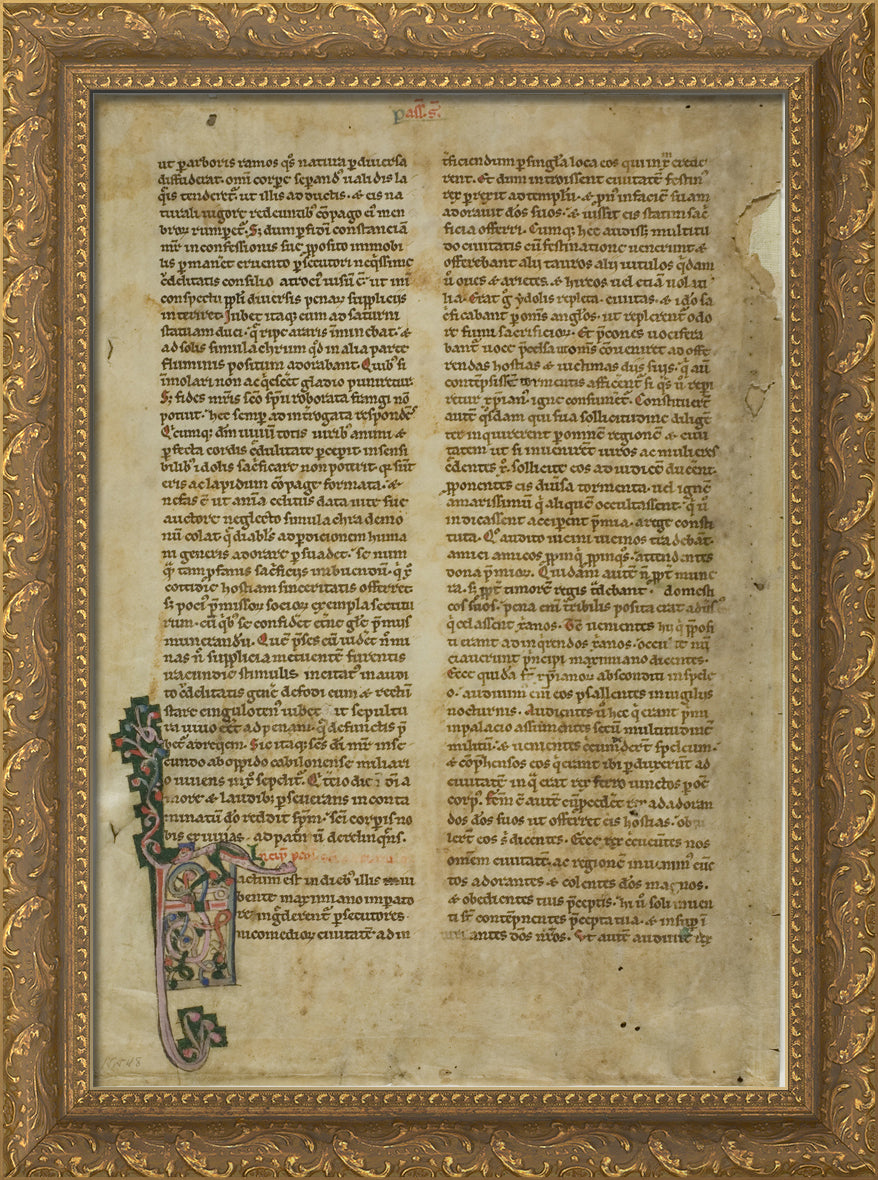 pass. s.
ut p̱ arboris ramos q̄s natura p̱ diuersa
diffuderat. om̄i corpe sepand᷒ ualidis la
q̄is tenderet᷑. ut illis adductis. ⁊ eis na
turali uigore redeuntib᷒ cōpago ei᷒ men
broꝝ rumperet᷑. S; dum p̱fidi constanciam
mr̄ in confessionis sue p̱posito inmobi
lis p̱maner&
c̄dēlitatis consilio atroci᷒ uisū ē. ut in
conspectu ppli diuersis penaꝝ suppliciis
interiret. Iubet itaq; eum ad saturni
statuam duci. q̄ ripe araris īminebat. ⁊
ad solis simulachrum q̄d in alia parte
fluminis positum adorabant. Cuib᷒ si
īmolari non acq̄escēt gladio puniretur
S; fides mr̄is sc̄o sp̄u roborata frangi nō
potuit. hec semp̱ ad int̄rogata respondēs
Q̄cumq; dm̄ uiuū totis uirib᷒ animi ⁊
p̱fecta cordis c̄dulitate p̱cepit. insensi
bilib᷒ idolis sac̄ficare non poterit. q̄ sunt
eris ac lapidum cōpage formata. ⁊
nefas ē ut anīa celitus data uite sue
auctore neglecto simulachra demo
nū colat. q̄ diabls̄ ad p̱dicionem huma
ni generis adorare p̱suadet.
q̄ tam p̱fanis sac̄ficiis inbuendū. q̄ x̄p̄o
cotidie hostiam sinceritatis offeret
si poci᷒ p̄missoꝝ socioꝝ exempla sectatu
rum. cū q̄b᷒ se confidēt et̄ne glē p̄mus
munerandū. Quē p̄ses cū uidēt n̄ mi
nas n̄ supplicia metuentē furentis
iracundie stimulis incitat᷒ inaudi
to c̄delitatis genē defodi eum ⁊ rectū
stare cinguloten᷒ iubet. ut sepultu
ra uiuo eēt ad penam. q̄ defunctis p̄
bet ad req̄em. Sic itaq; sc̄s dī mr̄ in se
cundo ab oppido cabilonense miliari
o uiuens in x̄p̄o sepelit᷑. Et t̄cio die ī dī a
more ⁊ laudib᷒ p̱seuerans in conta
minatū dn̄o reddit sp̄m. sc̄i corp̱is no
bis exuuias ad patr̄iā ū derelinq̄ns.
Incip̄
Factum est in dieb᷒ illis iu
bente maximiano imparato
re. ing̱derent᷑ p̱secutores
nicomedioꝝ ciuitatē ad in
t̄ficiendum p̱ singla loca eos qui in x̄m credē
rent. Et dum introissent ciuitatē festin᷒
rex p̱rexit ad templū. ⁊ p̱n᷒ in faciē suam
adorauit dōs suos. ⁊ iussit eis statim sac̄
ficia offerri. Cumq; hec audiss& multitu
do ciuitatis cū festinatione uenerunt ⁊
offerebant alii tauros alii uitulos q̄dam
ū oues ⁊ arietes. ⁊ hircos uel etiā uolati
lia. Erat g̊ ydolis repleta ciuitas. ⁊ ido sa
c̄ficabant p̱ om̄s angl̄os. ut replerent᷑ odo
re fumi sacrificioꝝ. Et p̄cones uocifera
bant᷑ uoce p̄celsa ut om̄s c̄ueniret ad offe
rendas hostias ⁊ uictimas diis suis. q̄ aū
contēpsissēt tormentis afficerēt᷑. si q̄s ū repi
retur x̄p̄iani igne consumeret᷑. Constituert̄
autē q̄sdam qui sua sollicitudine diligēt̄
ter inquirerent p̱ omnē regionē ⁊ ciui
tatem ut si inuenirēt uiros ac mulieres
c̄dentes x̄p̄o. sollicite eos ad iudicē ducent.
p̱ponentes eis diūsa tormenta. uel ignē
amarissimū q̄ aliq̄ue occultassent. q̄ ū
indicassent accipent p̄mia. a rege consti
tuta. Q̄ audito uicini uicinos tradebāt.
amici amicos p̱pinq̄ p̱pinq̄s. attendentes
dona p̄mioꝝ. Quidam autē n̄ p̱pt̄ mune
ra. s; p̱pt̄ timorē regis t̄debant domesti
cos suos. pena enī t̄ribilis posita erat
q̄ celassent x̄p̄ianos. Tc̄ uenientes hii q̄ p̱posi
ti erant ad inq̄rendos x̄p̄ianos.
ciauerunt p̄ncipi maximiano dicentes.
Ecce quida st̄ x̄p̄ianoꝝ absconditi in spelc̄
o. audiuim᷒ enī eos psallentes in uigiliis
nocturnis. Audientes ū hec q̄ erant p̄mi
in palacio assumētes secū multitudinē
militū. ⁊ uenientes c̄cumdert̄ speleum.
⁊ cōphensos eos q̄ erant ibi p̱duxerūt ad
ciuitatē in q̄ erat rex ferro iunctos p̱ oē
corp᷒. Fcm̄ ē autē cū p̱cedēt rex ad adoran
dos dōs suos ut offerret eis hostias.
lert̄ eos s̄ dicentes. Ecce rex c̄euntes nos
omnem ciuitatē. ac regionē inuenim᷒ cūc
tos adorantes ⁊ colentes dōs magnos.
⁊ obedientes tuis p̄ceptis. hii ū soli inuen
ti st̄ contēpnentes p̄cepta tua. ⁊ insup̱ ī
antes dōs nr̄os. Vt autē audiuit rex